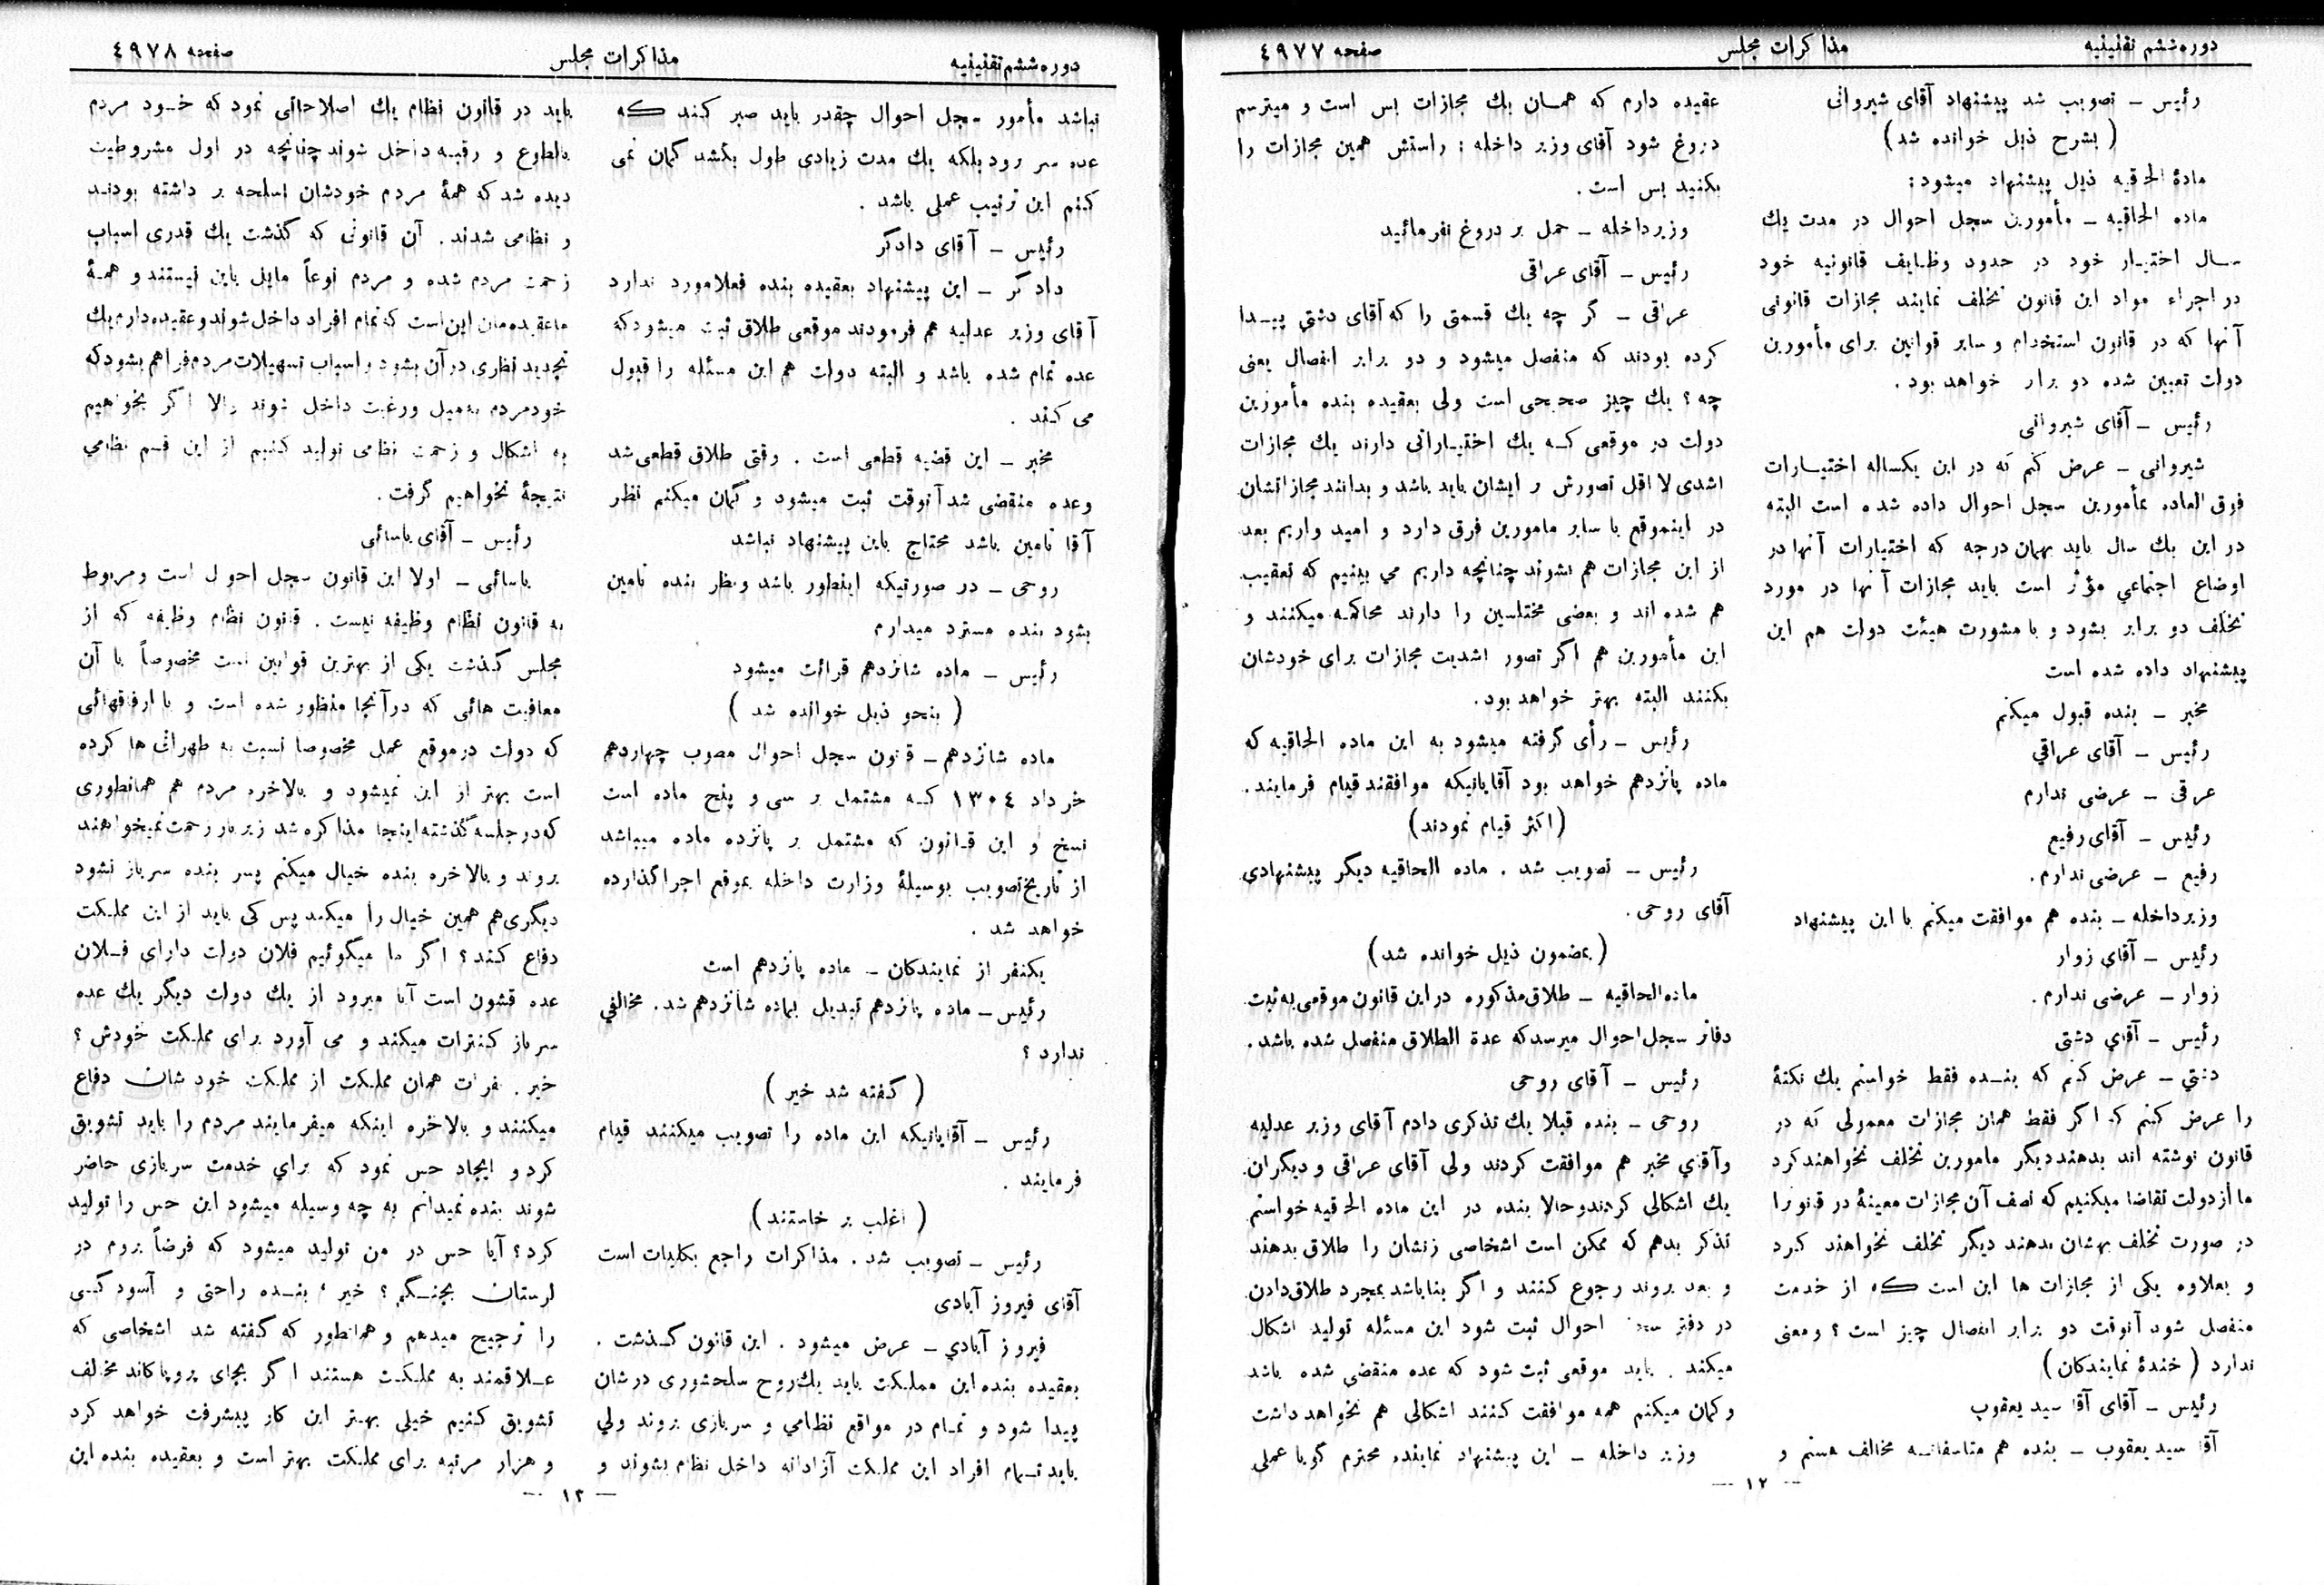 دوره ششم تقنینیه
مذاکرات مجلس
صفحه ٤٩٧٧
رئیس – تصویب شد پیشنهاد آقای شیروانی
( بشرح ذیل خوانده شد)
مادۀ الحاقیه ذیل پیشنهاد میشود:
ماده الحاقیه – مأمورین سجل احوال در مدت یك
سال اختیار خود در حدود وظایف قانونیه خود
در اجراء مواد این قانون تخلف نمایند مجازات قانونی
آنها که در قانون استخدام و سایر قوانین برای مأمورین
دولت تعیین شده دو برابر خواهد بود.
رئیس – آقای شیروانی
شیروانی – عرض کنم که در این یکساله اختیارات
فوق العاده بمأمورین سجل احوال داده شده است البته
در این یك سال باید بهمان درجه که اختیارات آنها در
اوضاع اجتماعي مؤثر است باید مجازات آنها در مورد
تخلف دو برابر بشود و با مشورت هیئت دولت هم این
پیشنهاد داده شده است
مخبر – بنده قبول میکنم
رئیس – آقای عراقي
عراقی – عرضی ندارم
رئیس – آقای رفیع
رفیع – عرضی ندارم.
وزیر داخله – بنده هم موافقت میکنم با این پیشنهاد
رئیس – آقای زوار
زوار – عرضی ندارم.
رئیس – آقاي دشتی
دشتي – عرض کنم که بنده فقط خواستم یك نکتۀ
را عرض کنم که اگر فقط همان مجازات معمولی که در
قانون نوشته اند بدهند دیگر مامورین تخلف نخواهند کرد
ما از دولت تقاضا میکنیم که نصف آن مجازات معینۀ در قانون را
در صورت تخلف بهشان بدهند دیگر تخلف نخواهند کرد
و بعلاوه یکی از مجازات ها این است که از خدمت
منفصل شود آنوقت دو برابر انفصال چیز است ؟ ومعنی
ندارد ( خندۀ نمایندکان)
رئیس – آقای آقا سید یعقوب
آقا سید یعقوب – بنده هم متاسفانه مخالف هستم و
عقیده دارم که همان یك مجازات بس است و میترسم
دروغ شود آقای وزیر داخله : راستش همین مجازات را
بکنید بس است.
وزیر داخله – حمل بر دروغ نفرمائید
رئیس – آقای عراقی
عراقی – گر چه یك قسمتی را که آقای دشتي پیدا
کرده بودند که منفصل میشود و دو برابر انفصال یعنی
چه ؟ یك چیز صحیحی است ولی بعقیده بنده مأمورین
دولت در موقعی که یك اختیاراتی دارند یك مجازات
اشدی لا اقل تصورش بر ایشان باید باشد و بدانند مجازاتشان
در اینموقع با سایر مامورین فرق دارد و امید واریم بعد
از این مجازات هم نشوند چنانچه داریم می بینیم که تعقیب
هم شده اند و بعضی مختلسین را دارند محاکمه میکنند و
این مأمورین هم اگر تصور اشدیت مجازات برای خودشان
بکنند البته بهتر خواهد بود.
رئیس – رأی گرفته میشود به این ماده الحاقیه که
ماده پانزدهم خواهد بود آقایانیکه موافقند قیام فرمایند.
(اکثر قیام نمودند)
رئیس – تصویب شد . ماده الحاقیه دیگر پیشنهادی
آقای روحی.
(بمضمون ذیل خوانده شد)
ماده الحاقیه – طلاق مذکوره در این قانون موقعی به ثبت
دفاتر سجل احوال میرسد که عدة الطلاق منفصل شده باشد.
رئیس – آقای روحی
روحی – بنده قبلا یك تذکری دادم آقای وزیر عدلیه
وآقاي مخبر هم موافقت کردند ولی آقای عراقی و دیگران
یك اشکالی کردند وحالا بنده در این ماده الحاقیه خواستم
تذکر بدهم که ممکن است اشخاصی زنشان را طلاق بدهند
و بعد بروند رجوع کنند و اگر بنا باشد بمجرد طلاق دادن
در دفتر سجل احوال ثبت شود این مسئله تولید اشکال
میکند . باید موقعی ثبت شود که عده منقضی شده باشد
وکمان میکنم همه موافقت کنند اشکالی هم نخواهد داشت
وزیر داخله – این پیشنهاد نماینده محترم گویا عملی
– ۱۲ –
دوره ششم تقنینیه
مذاکرات مجلس
صفحه ٤٩٧٨
نباشد مأمور سجل احوال چقدر باید صبر کند که
عده سر رود بلکه یك مدت زیادی طول بکشد گمان نمی
کنم این ترتیب عملی باشد .
رئیس – آقای دادگر
دادگر – این پیشنهاد بعقیده بنده فعلا مورد ندارد
آقای وزیر عدلیه هم فرمودند موقعی طلاق ثبت میشود که
عده تمام شده باشد و البته دولت هم این مسئله را قبول
می کند .
مخبر – این قضیه قطعی است . وقتی طلاق قطعی شد
وعده منقضی شد آنوقت ثبت میشود و گمان میکنم نظر
آقا تامین باشد محتاج باین پیشنهاد نباشد
روحی – در صورتیکه اینطور باشد ونظر بنده تامین
بشود بنده مسترد میدارم
رئیس – ماده شانزدهم قرائت میشود
( بنحو ذیل خوانده شد )
ماده شانزدهم – قانون سجل احوال مصوب چهاردهم
خرداد ۱۳۰٤ که مشتمل بر سی و پنج ماده است
نسخ و این قانون که مشتمل بر پانزده ماده میباشد
از تاریخ تصویب بوسیلۀ وزارت داخله بموقع اجرا گذارده
خواهد شد .
یکنفر از نمایندکان – ماده پانزدهم است
رئیس – ماده پانزدهم تبدیل بماده شانزدهم شد. مخالفی
ندارد ؟
( گفته شد خیر )
رئیس – آقایانیکه این ماده را تصویب میکنند قیام
فرمایند .
( اغلب بر خاستند )
رئیس – تصویب شد . مذاکرات راجع بکلیات است
آقای فیروز آبادی
فیروز آبادي – عرض میشود . این قانون گذشت .
بعقیده بنده این مملکت باید یك روح سلحشوری درشان
پیدا شود و تمام در مواقع نظامي و سربازی بروند ولي
باید تمام افراد این مملکت آزادانه داخل نظام بشوند و
باید در قانون نظام یك اصلاحاتی نمود که خود مردم
بالطوع و رقبه داخل شوند چنانچه در اول مشروطیت
دیده شد که همۀ مردم خودشان اسلحه بر داشته بودند
و نظامی شدند. آن قانونی که گذشت یك قدری اسباب
زحمت مردم شده و مردم نوعاً مایل باین نیستند و همۀ
ما عقیده مان این است که تمام افراد داخل شوند و عقیده دارم یك
تجدید نظری در آن بشود و اسباب تسهیلات مردم فراهم بشود که
خود مردم به میل ورغبت داخل شوند والا اگر بخواهیم
به اشکال و زحمت نظامی تولید کنیم از این قسم نظامي
نتیجۀ نخواهیم گرفت.
رئیس – آقای یاسائی
یاسائی – اولا این قانون سجل احوال است ومربوط
به قانون نظام وظیفه نیست . قانون نظام وظیفه که از
مجلس گذشت یکی از بهترین قوانین است مخصوصاً با آن
معافیت هائی که در آنجا منظور شده است و با ارفاقهائی
که دولت در موقع عمل مخصوصا نسبت به طهرانی ها کرده
است بهتر از این نمیشود و بالاخره مردم هم همانطوری
که در جلسه گذشته اینجا مذاکره شد زیر بار زحمت نمیخواهند
بروند و بالاخره بنده خیال میکنم پسر بنده سرباز نشود
دیگری هم همین خیال را میکند پس کی باید از این مملکت
دفاع کند؟ اگر ما میگوئیم فلان دولت دارای فلان
عده قشون است آیا میرود از یك دولت دیگر یك عده
سرباز کنترات میکند و می آورد برای مملکت خودش ؟
خیر . نفرات همان مملکت از مملکت خودشان دفاع
میکنند و بالاخره اینکه میفرمایند مردم را باید تشویق
کرد و ایجاد حس نمود که براي خدمت سربازی حاضر
شوند بنده نمیدانم به چه وسیله میشود این حس را تولید
کرد؟ آیا حس در من تولید میشود که فرضاً بروم در
لرستان بجنگم ؟ خیر ، بنده راحتی و آسودگی
را ترجیح میدهم و همانطور که گفته شد اشخاصی که
علاقمند به مملکت هستند اگر بجای پروپاکاند مخالف
تشویق کنیم خیلی بهتر این کار پیشرفت خواهد کرد
و هزار مرتبه برای مملکت بهتر است و بعقیده بنده این
– ۱۳ –